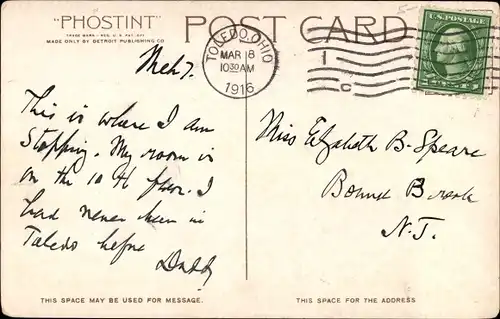 "PHOSTINT"
TRADE MARK—REG. U.S. PAT. OFF.
MADE ONLY BY DETROIT PUBLISHING CO.
POST CARD
TOLEDO, OHIO
MAR 8
10 30 AM
1916
1
C
U.S. POSTAGE
Mch 7.
This is where I am
Stopping. My room is
on the 10 th floor. I
had never been in
Toledo before
Daddy
Miss Elizabeth B. Speare
Bound Brook
N.J.
THIS SPACE MAY BE USED FOR MESSAGE.
THIS SPACE FOR THE ADDRESS